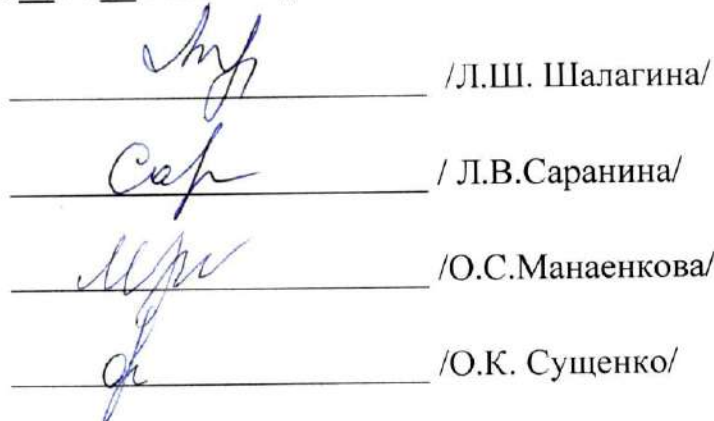 /Л.Ш. Шалагина/
/ Л.В.Саранина/
/О.С.Манаенкова/
/О.К. Сущенко/